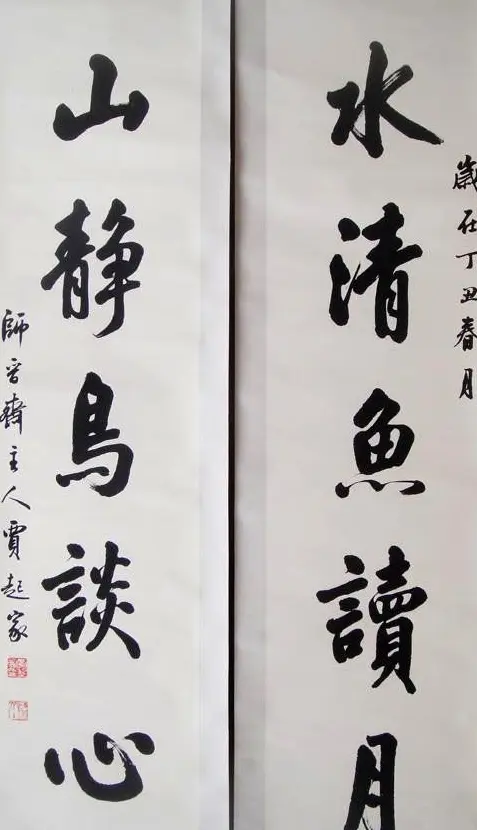 歲在丁丑春月
水清魚讀月
山静鳥談心
師晋齋主人賈起家